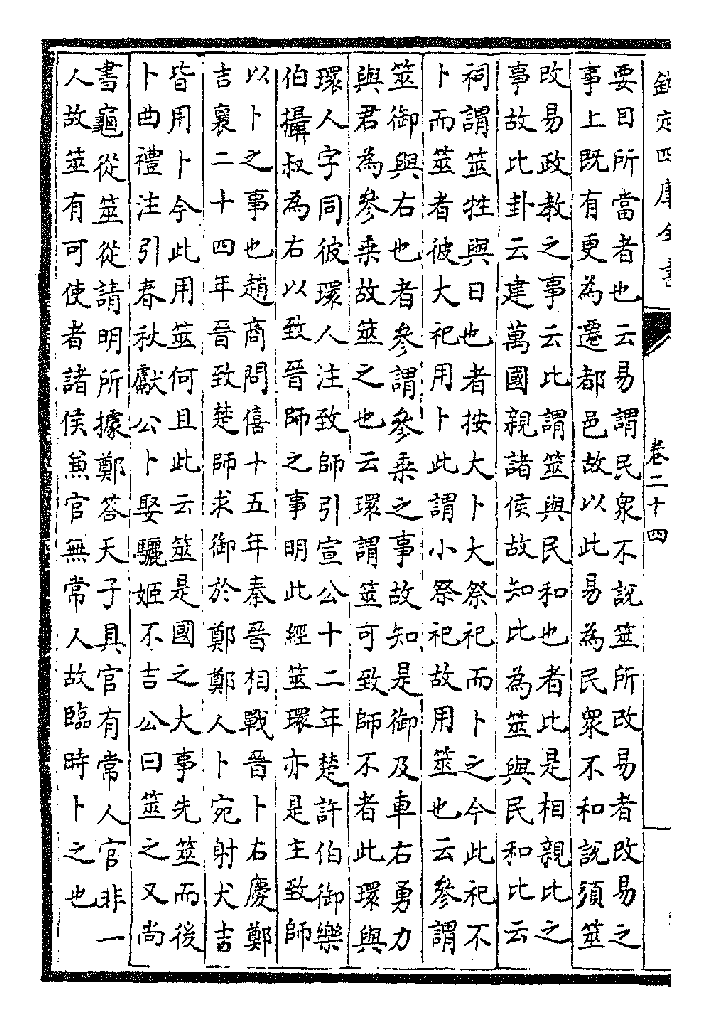 欽定四庫全書
卷二十四
要目所當者也云易謂民衆不說筮所改易者改易之
事上既有更為遷都邑故以此易為民衆不和說須筮
改易政教之事云比謂筮與民和也者比是相親比之
事故比卦云建萬國親諸侯故知比為筮與民和比云
祠謂筮牲與日也者按大卜大祭祀而卜之今此祀不
卜而筮者彼大祀用卜此謂小祭祀故用筮也云參謂
筮御與右也者參謂參乘之事故知是御及車右勇力
與君為參乘故筮之也云環謂筮可致師不者此環與
環人字同彼環人注致師引宣公十二年楚許伯御樂
伯攝叔為右以致晉師之事明此經筮環亦是主致師
以卜之事也趙商問僖十五年秦晉相戰晉卜右慶鄭
吉襄二十四年晉致楚師求御於鄭鄭人卜宛射犬吉
皆用卜今此用筮何且此云筮是國之大事先筮而後
卜曲禮注引春秋獻公卜娶驪姬不吉公曰筮之又尚
書龜從筮從請明所據鄭荅天子具官有常人官非一
人故筮有可使者諸侯兼官無常人故臨時卜之也